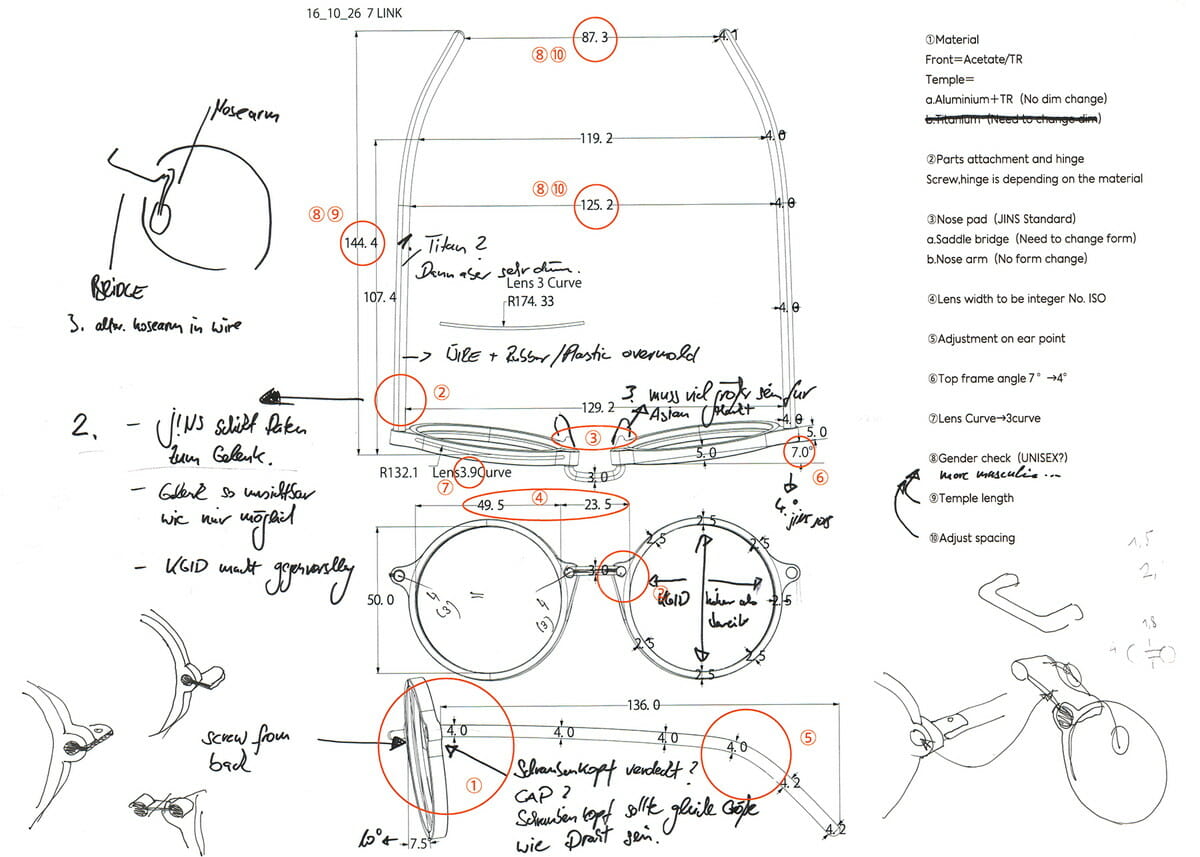 16_10_26 7 LINK
87. 3
4.1
⑧⑩
119. 2
4. 0
⑧⑩
125. 2
4. 0
⑧⑨
144. 4
1. Titan ?
Dann aber sehr dünn.
Lens 3 Curve
R174. 33
107. 4
4. 0
→ WIRE + Rubber/Plastic overmold
②
3. muss viel größer sein für
Asian Markt
129. 2
4. 0
③
5. 0
5. 0
7.0°
⑥
R132.1 Lens3.9Curve
⑦
3. 0
4.°
jins
Nosearm
BRIDGE
3. altern. nosearm in wire
2. – J!NS schickt Daten
zum Gelenk.
– Gelenk so unsichtbar
wie nur möglich
– KGID macht gegenvorschlag
④
49. 5
23. 5
2. 5
2. 5
2. 5
3. 0
50. 0
4
(3)
=
4
(3)
KGID
höher als
breit
2. 5
2. 5
2. 5
2. 5
136. 0
4. 0
4. 0
4. 0
4. 0
⑤
4. 2
4. 2
①
screw from
back
Schraubenkopf verdeckt ?
CAP ?
Schraubenkopf sollte gleiche Größe
wie Draht sein.
10°
7.5°
①Material
Front=Acetate/TR
Temple=
a.Aluminium+TR (No dim change)
b.Titanium (Need to change dim)
②Parts attachment and hinge
Screw,hinge is depending on the material
③Nose pad (JINS Standard)
a.Saddle bridge (Need to change form)
b.Nose arm (No form change)
④Lens width to be integer No. ISO
⑤Adjustment on ear point
⑥Top frame angle 7° →4°
⑦Lens Curve→3curve
⑧Gender check (UNISEX?)
more masculin ...
⑨Temple length
⑩Adjust spacing
1,5
2,
1,8